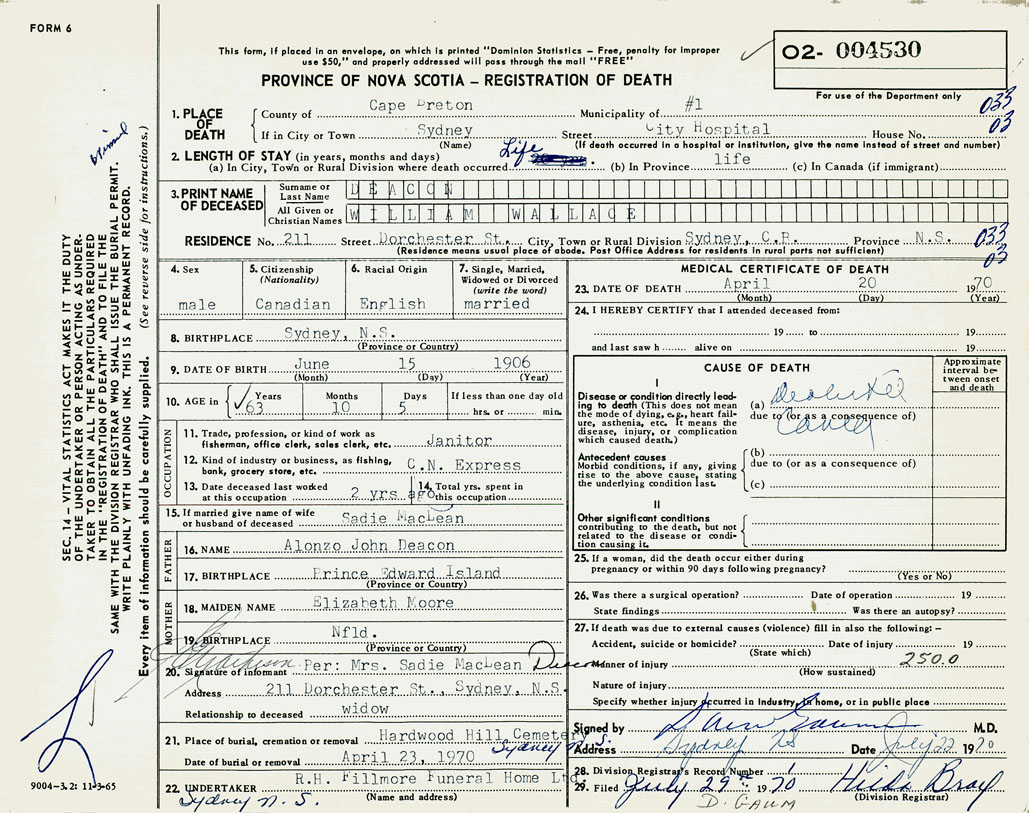 FORM 6
This form, if placed in an envelope, on which is printed "Dominion Statistics – Free, penalty for improper
use $50," and properly addressed will pass through the mail "FREE"
O2- 004530
For use of the Department only
PROVINCE OF NOVA SCOTIA – REGISTRATION OF DEATH
033
03
1. PLACE OF DEATH
County of Cape Breton Municipality of #1
If in City or Town Sydney Street City Hospital House No.
(Name) (If death occurred in a hospital or institution, give the name instead of street and number)
2. LENGTH OF STAY (in years, months and days)
(a) In City, Town or Rural Division where death occurred Life (b) In Province life (c) In Canada (if immigrant)
3. PRINT NAME OF DECEASED
Surname or Last Name DEACON
All Given or Christian Names WILLIAM WALLACE
RESIDENCE No. 211 Street Dorchester St. City, Town or Rural Division Sydney, C.B. Province N.S.
(Residence means usual place of abode. Post Office Address for residents in rural parts not sufficient)
033
03
4. Sex
male
5. Citizenship
(Nationality)
Canadian
6. Racial Origin
English
7. Single, Married,
Widowed or Divorced
(write the word)
married
8. BIRTHPLACE Sydney, N.S.
(Province or Country)
9. DATE OF BIRTH June 15 1906
(Month) (Day) (Year)
10. AGE in Years Months Days If less than one day old
63 10 5 hrs. or min.
OCCUPATION
11. Trade, profession, or kind of work as
fisherman, office clerk, sales clerk, etc. Janitor
12. Kind of industry or business, as fishing,
bank, grocery store, etc. C.N. Express
13. Date deceased last worked
at this occupation 2 yrs ago
14. Total yrs. spent in
this occupation
15. If married give name of wife
or husband of deceased Sadie MacLean
FATHER
16. NAME Alonzo John Deacon
17. BIRTHPLACE Prince Edward Island
(Province or Country)
MOTHER
18. MAIDEN NAME Elizabeth Moore
19. BIRTHPLACE Nfld.
(Province or Country)
20. Signature of informant Per: Mrs. Sadie MacLean Deacon
Address 211 Dorchester St., Sydney, N.S.
Relationship to deceased widow
21. Place of burial, cremation or removal Hardwood Hill Cemetery
Sydney N.S.
Date of burial or removal April 23, 1970
22. UNDERTAKER R.H. Fillmore Funeral Home Ltd.
Sydney N.S. (Name and address)
MEDICAL CERTIFICATE OF DEATH
23. DATE OF DEATH April 20 1970
(Month) (Day) (Year)
24. I HEREBY CERTIFY that I attended deceased from:
19 to 19
and last saw h alive on 19
CAUSE OF DEATH
Approximate interval between onset and death
I
Disease or condition directly leading to death (This does not mean the mode of dying, e.g., heart failure, asthenia, etc. It means the disease, injury, or complication which caused death.)
(a)
due to (or as a consequence of)
Antecedent causes
Morbid conditions, if any, giving rise to the above cause, stating the underlying condition last.
(b)
due to (or as a consequence of)
(c)
II
Other significant conditions
contributing to the death, but not related to the disease or condition causing it.
25. If a woman, did the death occur either during
pregnancy or within 90 days following pregnancy?
(Yes or No)
26. Was there a surgical operation? Date of operation 19
State findings Was there an autopsy?
27. If death was due to external causes (violence) fill in also the following: –
Accident, suicide or homicide? Date of injury 19
(State which)
Manner of injury 250.0
(How sustained)
Nature of injury
Specify whether injury occurred in Industry, in home, or in public place
Signed by M.D.
Address Sydney NS Date July 22 1970
28. Division Registrar's Record Number
29. Filed July 29th 1970 Hilda Bray
D. GAUM (Division Registrar)
SEC. 14 – VITAL STATISTICS ACT MAKES IT THE DUTY
OF THE UNDERTAKER OR PERSON ACTING AS UNDER-
TAKER TO OBTAIN ALL THE PARTICULARS REQUIRED
IN THE "REGISTRATION OF DEATH" AND TO FILE THE
SAME WITH THE DIVISION REGISTRAR WHO SHALL ISSUE THE BURIAL PERMIT.
WRITE PLAINLY WITH UNFADING INK. THIS IS A PERMANENT RECORD.
Every item of information should be carefully supplied. (See reverse side for instructions.)
9004-3.2: 11-3-65